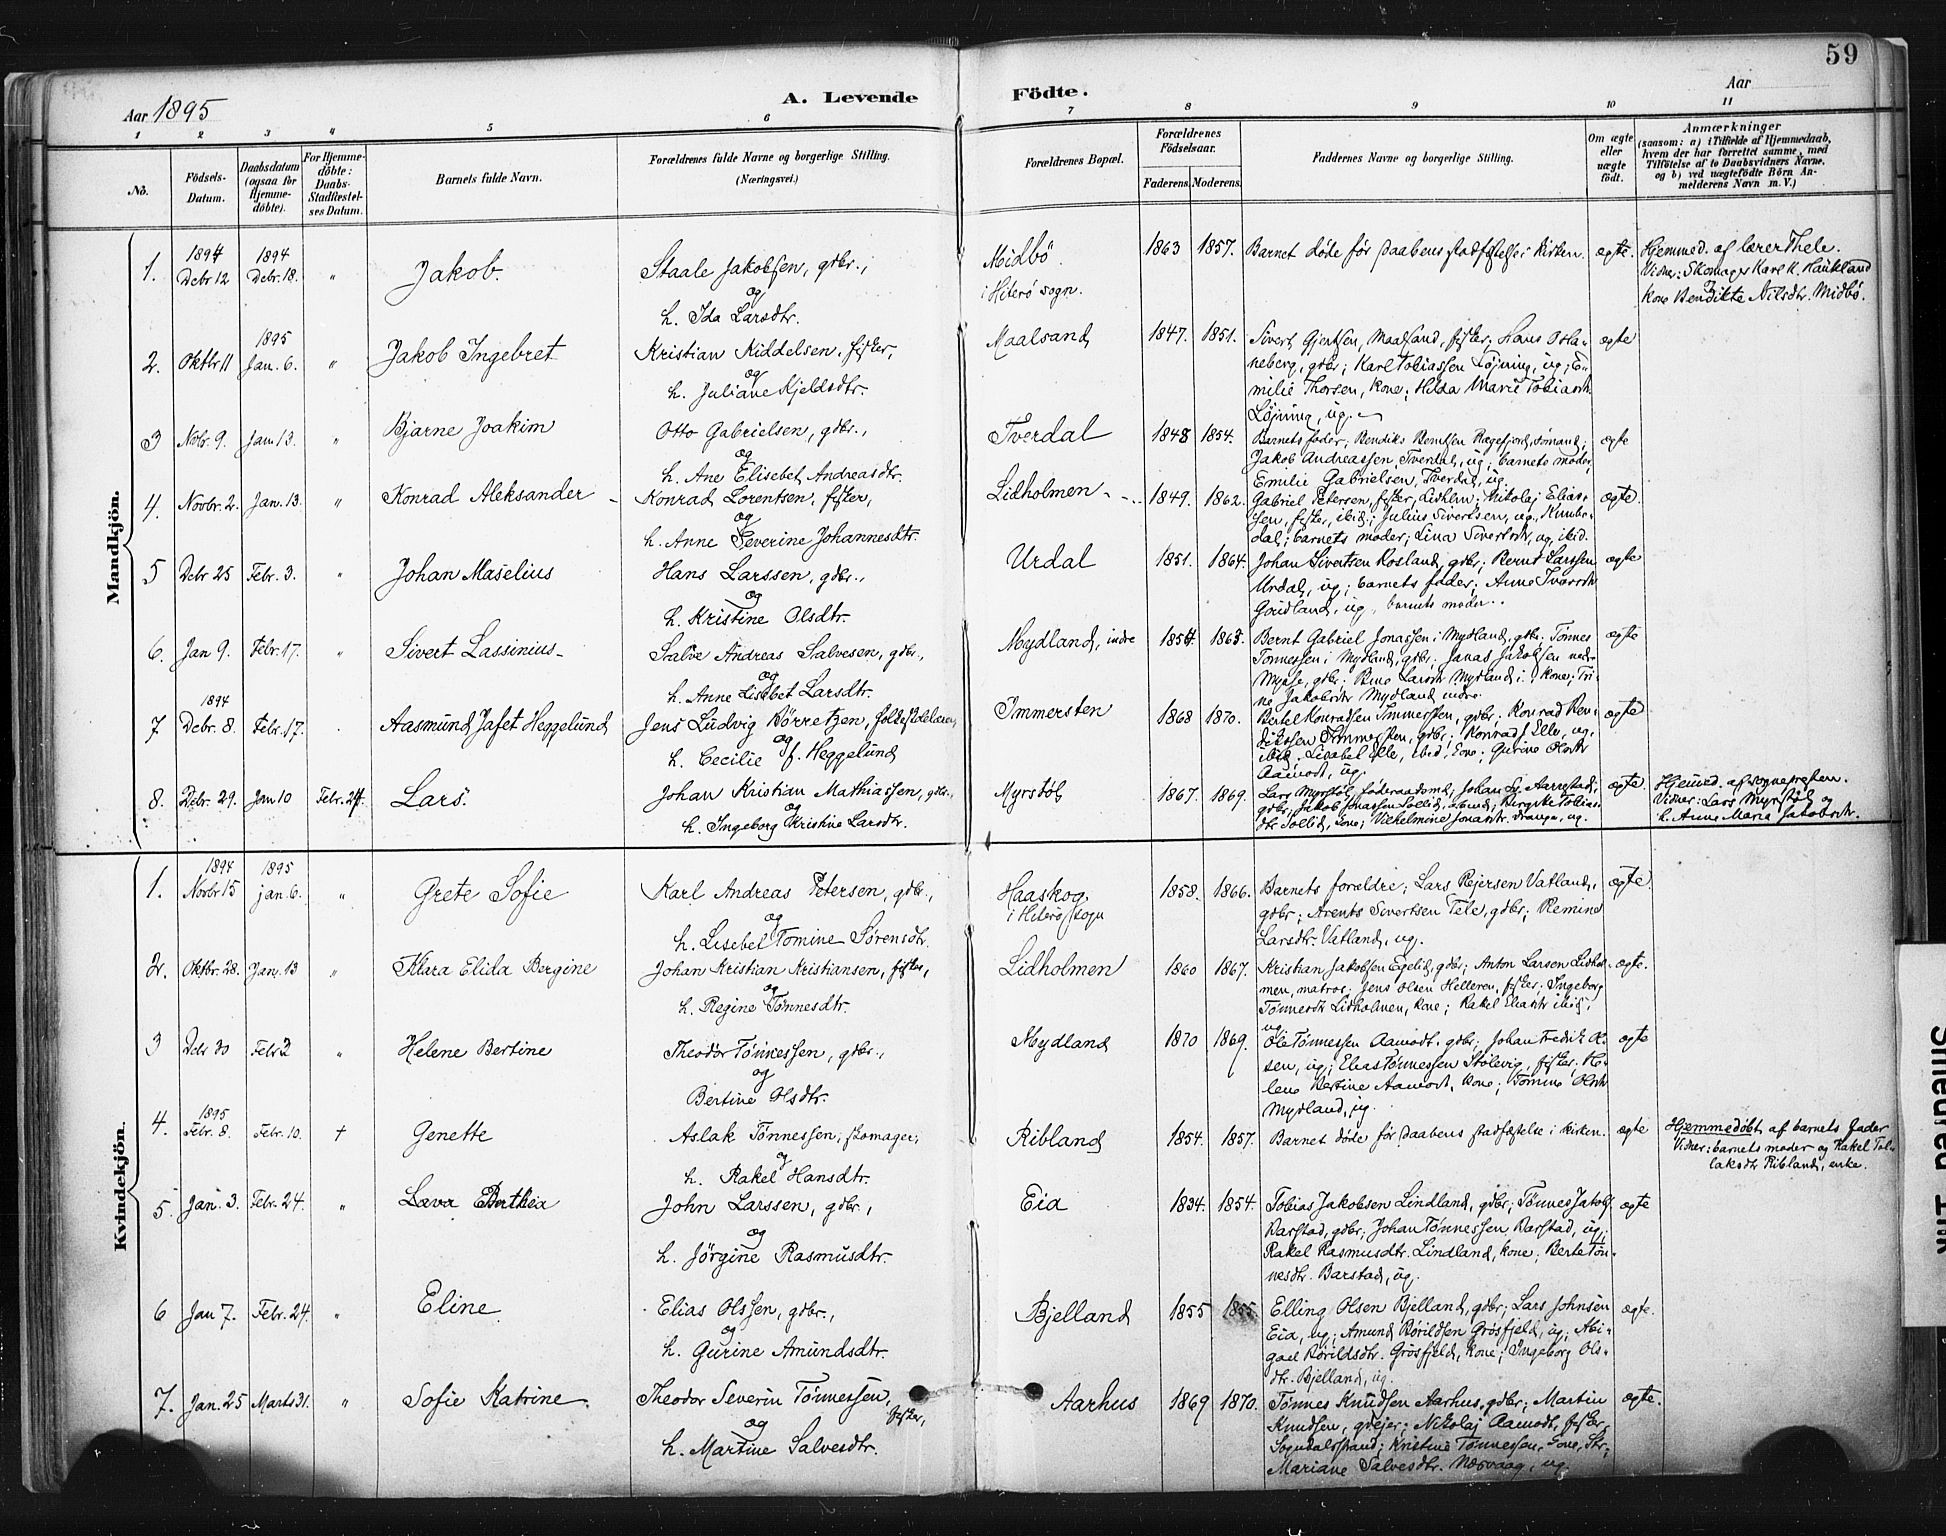 59
Aar 1895
A. Levende
Födte.
Aar
1 2 3 4 5 6 7 8 9 10 11
No.
Födsels-
Datum.
Daabsdatum
(ogsaa for
Hjemme-
döbte).
For Hjemme-
döbte:
Daabs-
Stadfæstel-
ses Datum.
Barnets fulde Navn.
Forældrenes fulde Navne og borgerlige Stilling.
(Næringsvei.)
Forældrenes Bopæl.
Forældrenes
Födselsaar.
Faderens. Moderens.
Faddernes Navne og borgerlige Stilling.
Om ægte
eller
uægte
födt.
Anmærkninger
(saasom: a) i Tilfælde af Hjemmedaab,
hvem der har forrettet samme, med
Tilföielse af to Daabsvidners Navne,
og b) ved uægtefödte Börn An-
melderens Navn m. V.)
Mandkjön.
1. 1894 Debr 12 1894 Debr. 18. " Jakob. Staale Jakobsen, gdbr.,
og
h. Ida Larsdtr.
Midbö
i Hiterö sogn.
1863 1857. Barnet døde før daabens stadfæstelse i kirken. ægte.
Hjemmed. af lærer Thele.
Vidner: Skomager Karl K. Haukland
og
kone Bendikte Nilsdtr. Midbö.
2. Oktbr 11 1895 Jan. 6. " Jakob Ingebret Kristian Kiddelsen, fisker,
og
h. Juliane Kjeldsdtr.
Maalsand 1847. 1851. Sivert Gjertsen, Maalsand, fisker; Hans O. Ha-
neberg, gdbr; Karl Tobiassen Løjning, ug; E-
milie Thorsen, kone; Hilda Marie Tobiasdtr.
Løjning, ug.
ægte
3 Novbr. 9. Jan 13. " Bjarne Joakim Otto Gabrielsen, gdbr.,
og
h. Ane Elisebet Andreasdtr.
Tverdal 1848 1854. Barnets fader, Bendiks Berntsen Rægefjord, sømand;
Jakob Andreassen, Tverdal, ug; barnets moder,
Emilie Gabrielsen, Tverdal, ug.
ægte
4. Novbr. 2. Jan. 13. " Konrad Aleksander Konrad Lorentsen, fisker,
og
h. Anne Severine Johannesdtr.
Lidholmen 1849. 1862. Gabriel Petersen, fisker, Lidhlm; Nikolaj Elias-
sen, fisker, ibid; Julius Sivertsen, ug,
barnets moder; Lina Sivertsdtr, ug, ibid.
ægte.
5 Debr 25 Febr. 3. " Johan Maselius Hans Larssen, gdbr.,
og
h. Kristine Olsdtr.
Urdal 1851. 1864. Johan Sivertsen Rosland, gdbr; Bernt Larssen
Urdal, ug; barnets fader; Anne
ug, barnets moder.
ægte
6. Jan 9. Febr. 17. " Sivert Lassinius Salve Andreas Salvesen, gdbr.,
og
h. Anne Lisebet Larsdtr.
Mydland, indre 1854 1863. Bernt Gabriel Jonassen i Mydland, gdbr. Tønnes
Tønnessen i Mydland, gdbr; Jonas Jakobsen
gdbr. Larsdtr Mydland i. kone; Tri-
ne Jakobsdtr Mydland indre.
ægte
7 1894 Debr. 8. Febr. 17. Aasmund Jafet Heggelund Jens Ludvig Börretzen, folkeskolelærer,
og
h. Cecilie f. Heggelund
Immersten 1868 1870. Bertel Konradsen Immersten, gdbr; Konrad Ben-
diktsen Immersten, gdbr; Konrad J Elle, ug,
ibid; Lisabet Elle, ibid, kone; Gurine Olsdtr
Aamodt, ug.
ægte
8. Debr. 29. Jan 10 Febr. 24. Lars. Johan Kristian Mathiassen, gdbr.,
og
h. Ingeborg Kristine Larsdtr.
Myrstøl 1867. 1869. Lars Myrstøl, føderaadsmd; Johan Aarrestad,
gdbr; Jakob Jonassen Sollid, Tobias-
dtr Sollid, kone; Vilhelmine Jonasdtr. Drange, ug.
ægte.
Hjemmd. af sognepresten.
Vidner: Lars Myrstøl og
h. Anne Maria Jakobsdtr.
Kvindekjön.
1. 1894 Novbr 15 1895 jan. 6. " Grete Sofie Karl Andreas Petersen, gdbr.,
og
h. Lisebet Tomine Sørensdtr.
Haaskog
i Hiterø sogn
1858. 1866. Barnets forældre; Lars Rejersen Vatland,
gdbr; Arents Sivertsen Tele, gdbr; Remine
Larsdtr. Vatland, ug.
ægte.
2. Oktbr. 28. Jan. 13 " Klara Elida Bergine Johan Kristian Kristiansen, fisker,
og
h. Regine Tønnesdtr.
Lidholmen 1860 1867. Kristian Jakobsen Egelid, gdbr; Anton Larsen Lidhol-
men, matros; Jens Olsen Helleren, fisker; Ingeborg
Tønnesdtr Lidholmen, kone; Rakel Eliasdtr ibid,
ug
ægte.
3 Debr 30 Febr 2 " Helene Bertine Theodor Tønnessen, gdbr.,
og
Bertine Olsdtr.
Mydland 1870 1869. Ole Tønnessen Aamodt, gdbr; Johan Fredrik
sen, ug; Elias Tønnessen Stølevig, fisker; He-
lene Bertine Aamodt, kone; Tomine Olsdtr
Mydland, ug.
ægte
4. 1895 Febr. 8. Febr. 10. † Genette Aslak Tønnessen, skomager;
og
h. Rakel Hansdtr.
Ribland 1854. 1857. Barnet døde før daabens stadfæstelse i kirken. ægte
Hjemmedøbt af barnets fader
Vidner: barnets moder og Rakel Tol-
laksdtr Ribland, enke.
5. Jan. 3. Febr. 24. " Lava Berthea John Larssen, gdbr.,
og
h. Jörgine Rasmusdtr.
Eia 1834. 1854. Tobias Jakobsen Lindland, gdbr, Tønnes Jakobs.
Barstad, gdbr; Johan Tønnessen Barstad, ug;
Rakel Rasmusdtr. Lindland, kone; Berte Tøn-
nesdtr. Barstad, ug.
ægte
6 Jan 7. Febr. 24. " Eline Elias Olssen, gdbr.,
og
h. Gurine Amundsdtr.
Bjelland 1855 1855. Elling Olsen Bjelland, gdbr; Lars Johnsen
Eia, ug; Amund Børildsen Grøsfjeld, ug; Abi-
gael Børildsdtr. Grösfjeld, kone; Ingeborg Ols-
dtr. Bjelland, ug.
ægte.
7. Jan. 25 Marts 31. " Sofie Katrine Theodor Severin Tønnessen,
fisker,
og
h. Martine Salvesdtr.
Aarhus 1869 1870. Tønnes Knudsen Aarhus, gdbr; Martin
Knudsen, Nikolaj Aamodt, fisker,
Sogndalsstrand; Kristine Tønnessen, kone, Str;
Mariane Salvesdtr. Næsvaag, ug.
ægte.